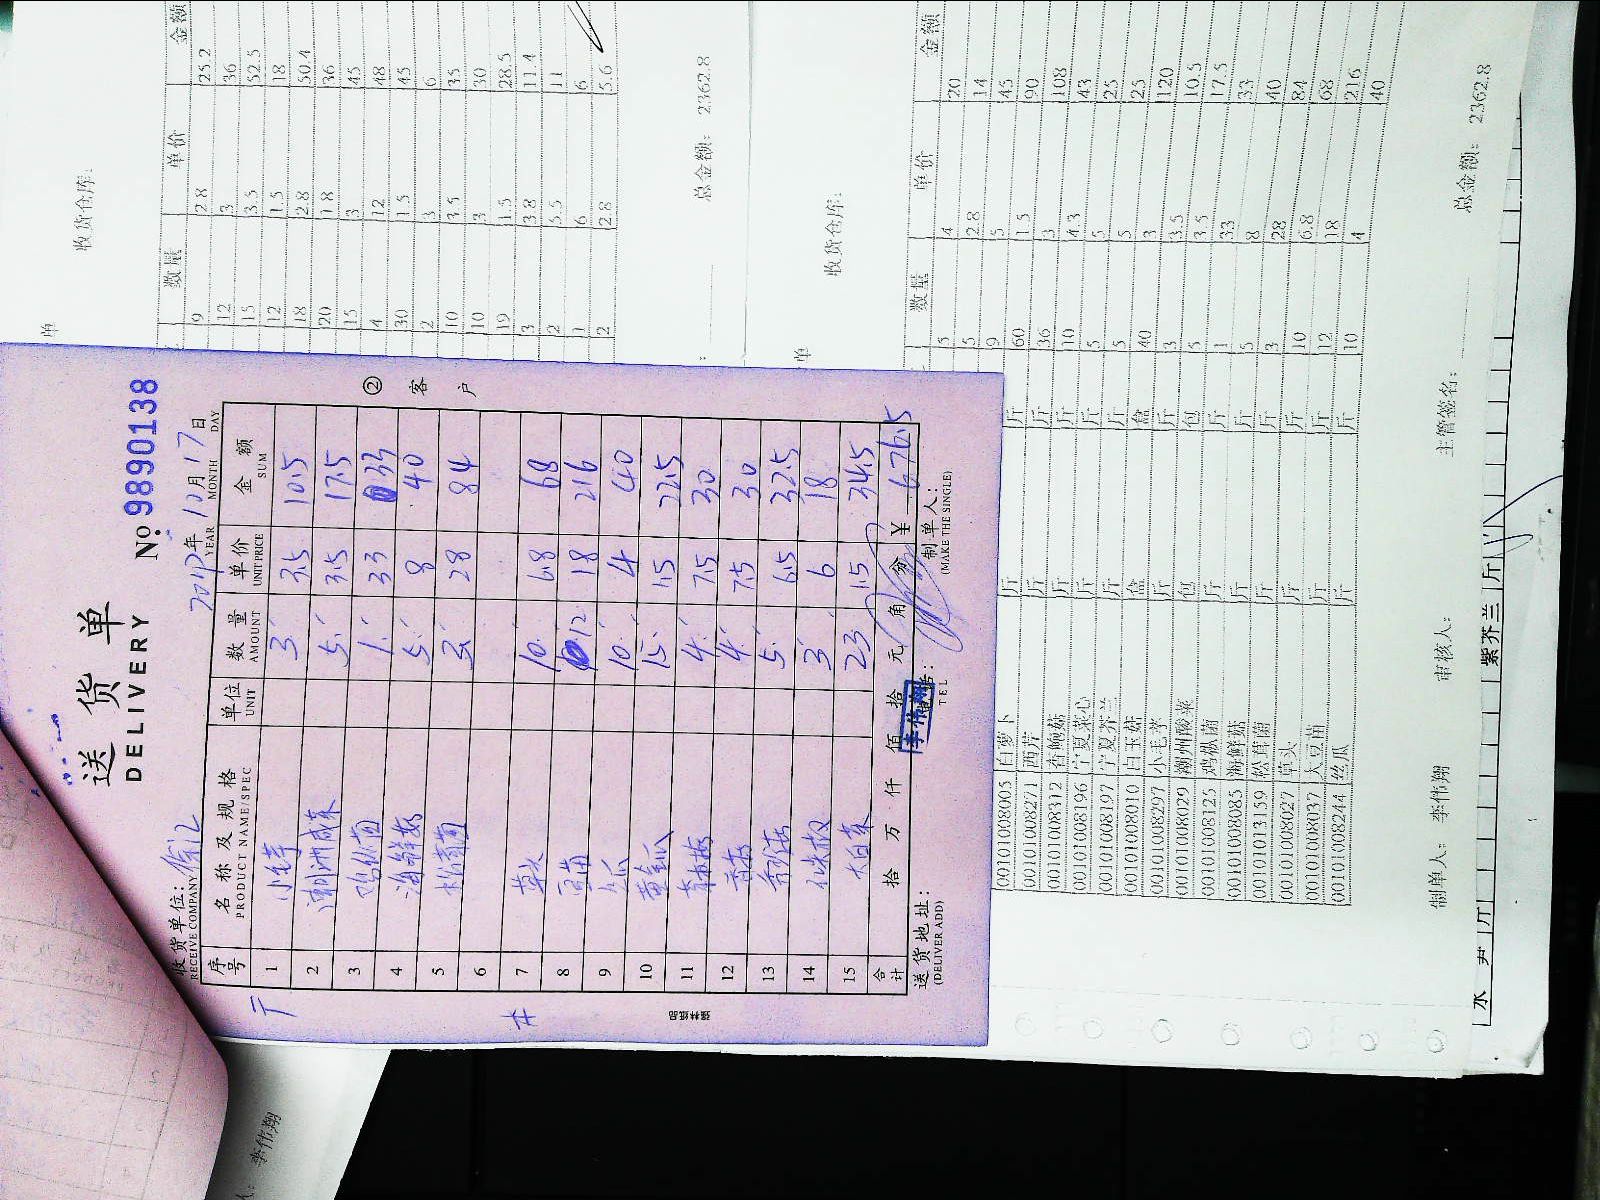 送货单
DELIVERY
№ 9890138
收货单位: 徐汇
RECEIVE COMPANY
年 10月17日
YEAR MONTH DAY
序号 名称及规格 单位 数量 单价 金额
PRODUCT NAME/SPEC UNIT AMOUNT UNIT PRICE SUM
1 小芋 3 3.5 10.5
2 潮州咸菜 5 3.5 17.5
3 鸡枞菌 1 33 33
4 海鲜菇 5 8 40
5 松茸菌 3 28 84
6
7 草头 10 6.8 68
8 豆苗 12 18 216
9 丝瓜 10 4 40
10 黄金瓜 15 1.5 22.5
11 4 7.5 30
12 4 7.5 30
13 5 6.5 32.5
14 3 6 18
15 大白菜 23 1.5 34.5
合计 拾 万 仟 佰 拾 元 角 分 ¥ 676.5
送货地址:
(DELIVER ADD)
TEL
制单人:
(MAKE THE SINGLE)
② 客户
李伟翔
强林纸品
斤
单
收货仓库:
数量 单价 金额
9 2.8 25.2
12 3 36
15 3.5 52.5
12 1.5 18
18 2.8 50.4
20 1.8 36
15 3 45
4 12 48
30 1.5 45
2 3 6
10 3.5 35
10 3 30
19 1.5 28.5
3 3.8 11.4
2 5.5 11
1 6 6
2 2.8 5.6
总金额: 2362.8
单
收货仓库:
数量 单价 金额
5 4 20
5 2.8 14
9 5 45
00101008005 白萝卜 斤 斤 60 1.5 90
00101008271 西芹 斤 斤 36 3 108
00101008312 香鲍菇 斤 斤 10 4.3 43
00101008196 宁夏菜心 斤 斤 5 5 25
00101008197 宁夏芥兰 斤 斤 5 5 25
00101008010 白玉菇 盒 盒 40 3 120
00101008297 小毛芋 斤 斤 3 3.5 10.5
00101008029 潮州酸菜 包 包 5 3.5 17.5
00101008125 鸡枞菌 斤 斤 1 33 33
00101008085 海鲜菇 斤 斤 5 8 40
00101013159 松茸菌 斤 斤 3 28 84
00101008027 草头 斤 斤 10 6.8 68
00101008037 大豆苗 斤 斤 12 18 216
00101008244 丝瓜 斤 斤 10 4 40
总金额: 2362.8
制单人: 李伟翔 审核人: 主管签名:
紫芥兰 斤
李伟翔